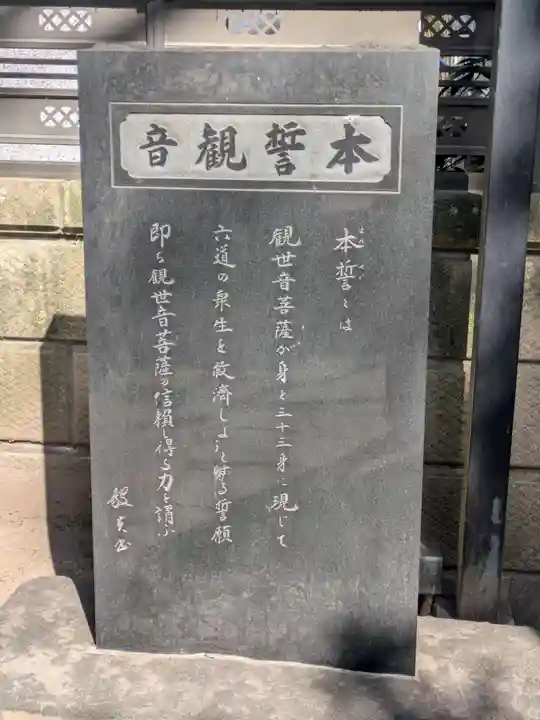 本誓観音
本誓とは
ほんぜい
観世音菩薩が身を三十三身に現じて
六道の衆生を救済しようとする誓願
即ち観世音菩薩の信頼し得る力を謂ふ